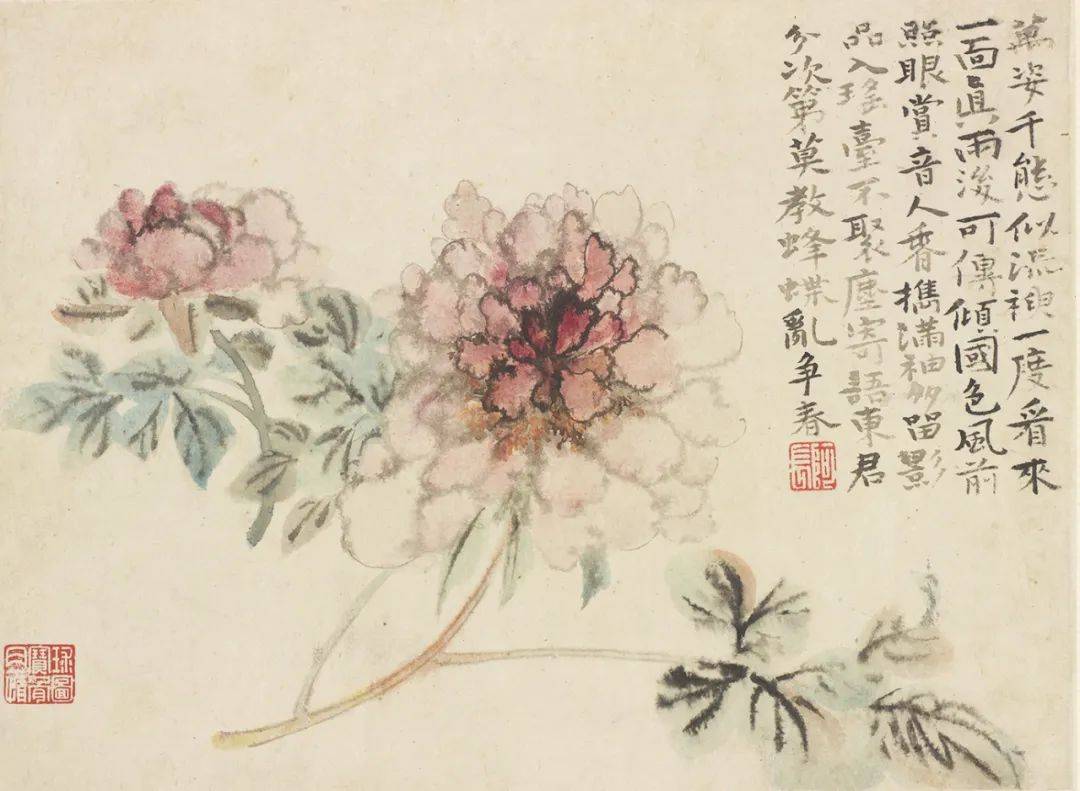 萬姿千態似流神一度看來
一面眞雨後可傳傾國色風前
照眼賞音人香擕滿袖多留影
品入瑤臺不聚塵寄語東君
分次第莫教蜂蝶亂争春
阿長
球圖寶